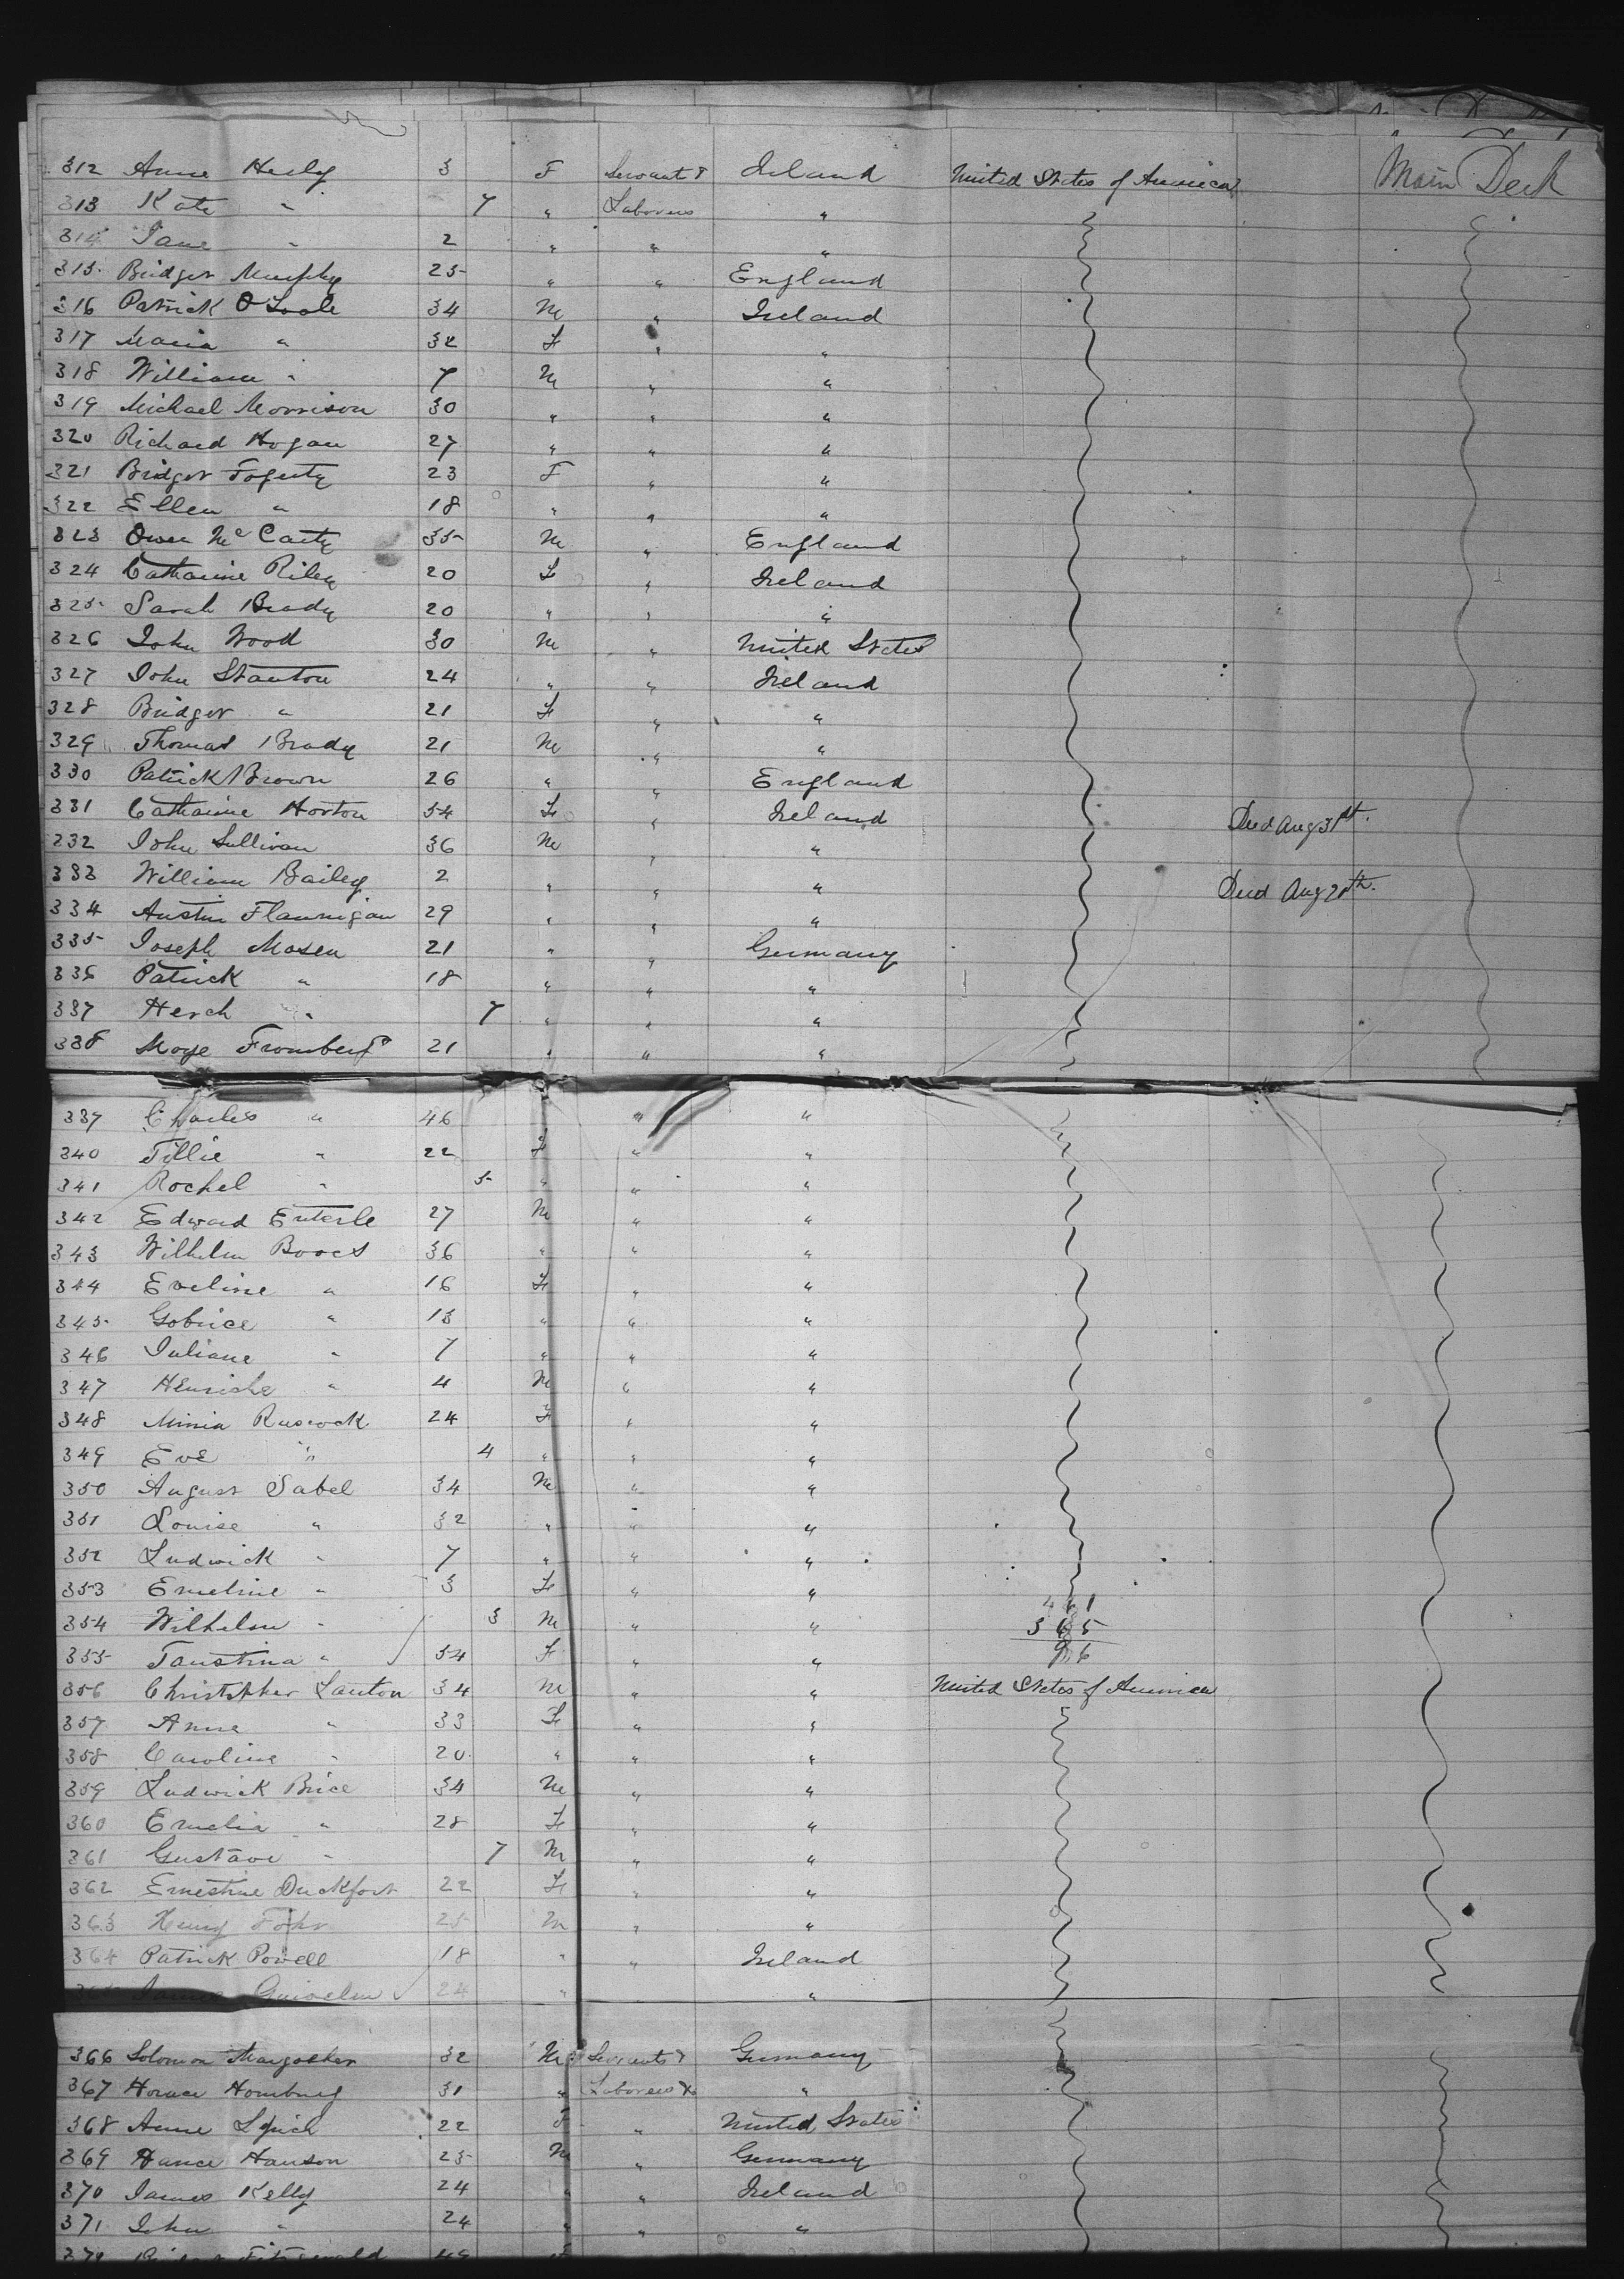 312 Anne Hesly 3 F Servants & Ireland United States of America Main Deck
313 Kate " 7 " Laborers "
314 Jane " 2 " " "
315 Bridget Murphy 25 " " England
316 Patrick O'Toole 34 M " Ireland
317 Maria " 32 F " "
318 William " 7 M " "
319 Michael Morrison 30 " " "
320 Richard Hogan 27 " " "
321 Bridget Fogerty 23 F " "
322 Ellen " 18 " " "
323 Owen McCarty 35 M " England
324 Catharine Riley 20 F " Ireland
325 Sarah Brady 20 " " "
326 John Wood 30 M " United States
327 John Stanton 24 " " Ireland
328 Bridget " 21 F " "
329 Thomas Brady 21 M " "
330 Patrick Brown 26 " " England
331 Catharine Horton 54 F " Ireland Died Aug 31st.
332 John Sullivan 36 M " "
333 William Bailey 2 " " " Died Aug 20th.
334 Austin Flannigan 29 " " "
335 Joseph Mosen 21 " " Germany
336 Patrick " 18 " " "
337 Herch " 7 " " "
338 Moye Fromberg 21 " " "
337 Charles " 46 " "
340 Tillie " 22 F " "
341 Rochel " 5 " " "
342 Edward Enterle 27 M " "
343 Wilhelm Boocs 36 " " "
344 Eveline " 16 F " "
345 Gobrice " 13 " " "
346 Juliane " 7 " " "
347 Henriche " 4 M " "
348 Minia Ruscock 24 F " "
349 Eve " 4 " " "
350 August Sabel 34 M " "
351 Louise " 32 " " "
352 Ludwick " 7 " " "
353 Emeline " 3 F " "
461
354 Wilhelm " 3 M " " 365
355 Faustina " 54 F " " 96
356 Christopher Lauton 34 M " " United States of America
357 Anna " 33 F " "
358 Caroline " 20 " " "
359 Ludwick Brice 34 M " "
360 Emelia " 28 F " "
361 Gustave " 7 M " "
362 Ernestine Duckfort 22 F " "
363 Henry Fohr 25 M " "
364 Patrick Powell 18 " " Ireland
James 24 " "
366 Solomon 32 M Servants & Germany
367 Horace Homburg 31 " Laborers "
368 Anne Lynch 22 F " United States
369 Hance Hanson 25 M " Germany
370 James Kelly 24 " " Ireland
371 John " 24 " " "
Fitzgerald